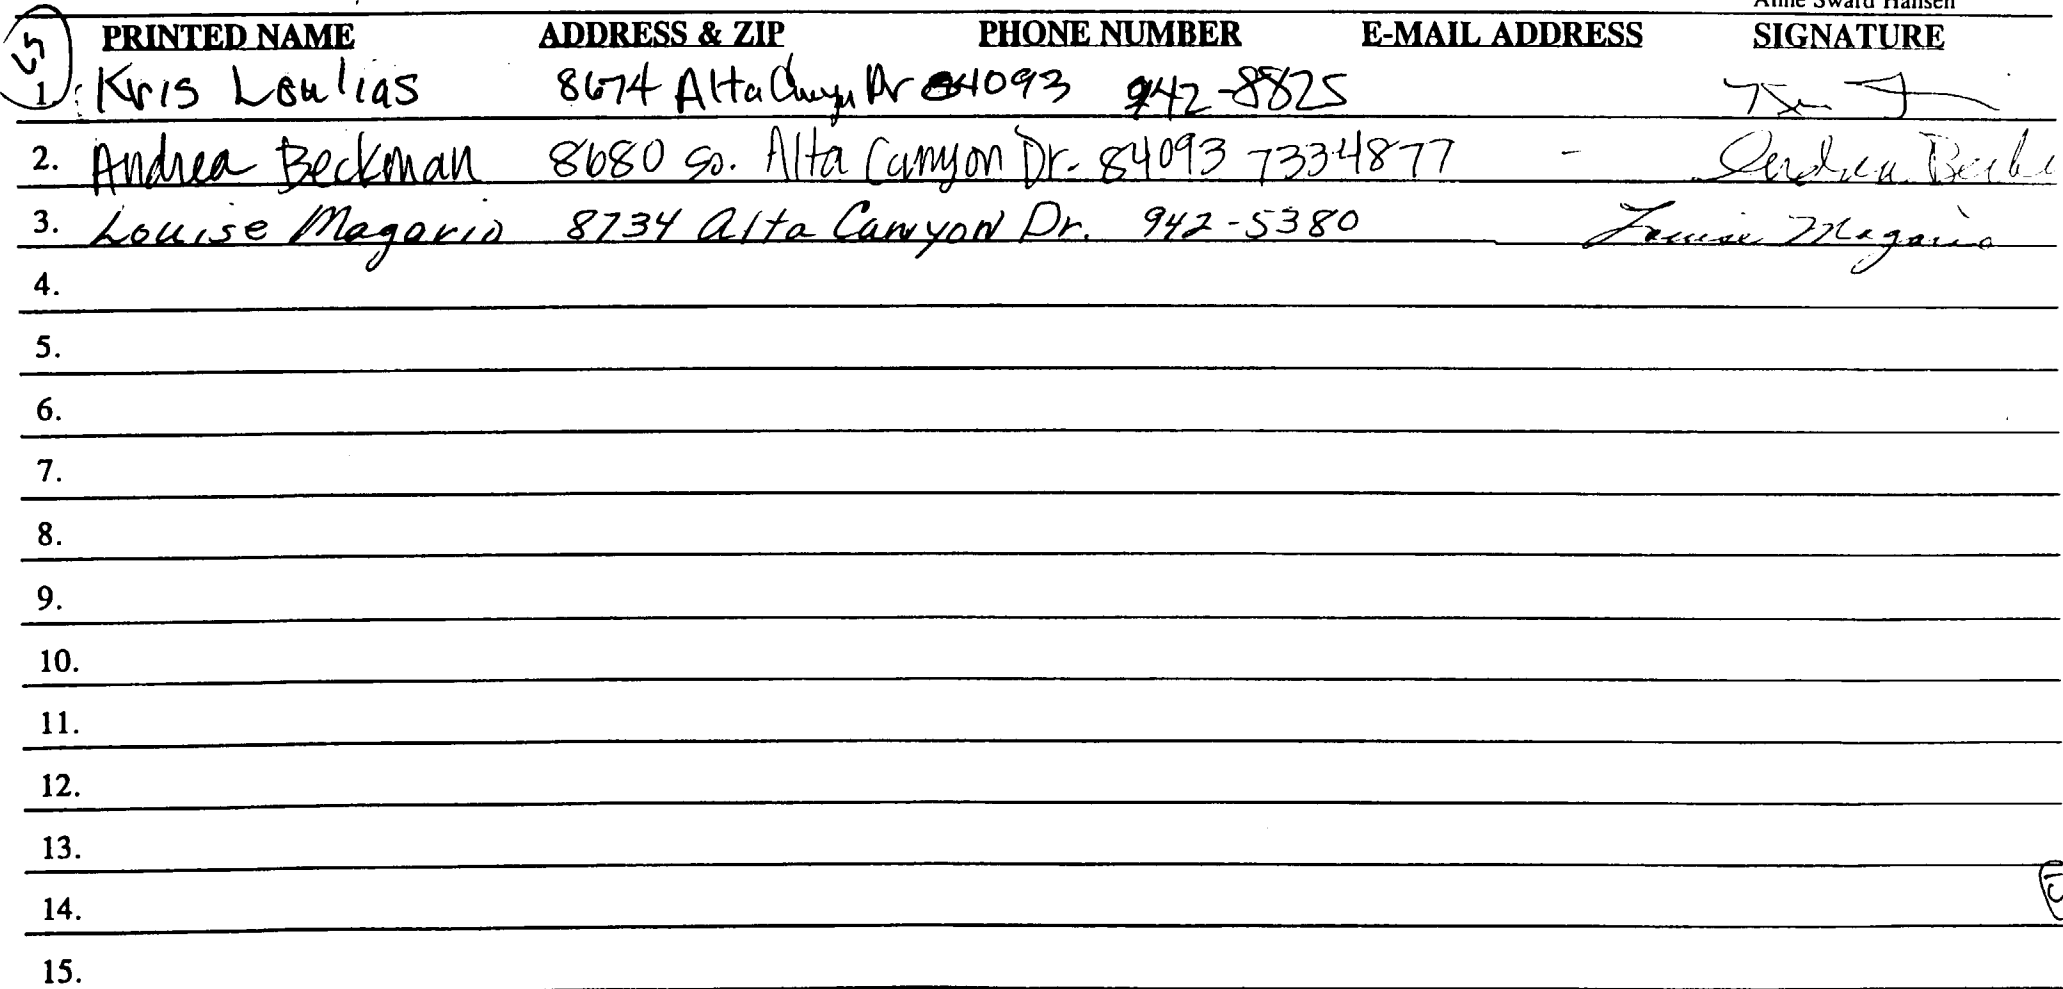 Anne Sward Hansen
PRINTED NAME ADDRESS & ZIP PHONE NUMBER E-MAIL ADDRESS SIGNATURE
1. Kris Loulias 8674 Alta Canyon Dr 84093 942-8825
2. Andrea Beckman 8680 So. Alta Canyon Dr. 84093 7334877 - Andrea Beck
3. Louise Magorio 8734 Alta Canyon Dr. 942-5380 Louise Magorio
4.
5.
6.
7.
8.
9.
10.
11.
12.
13.
14.
15.